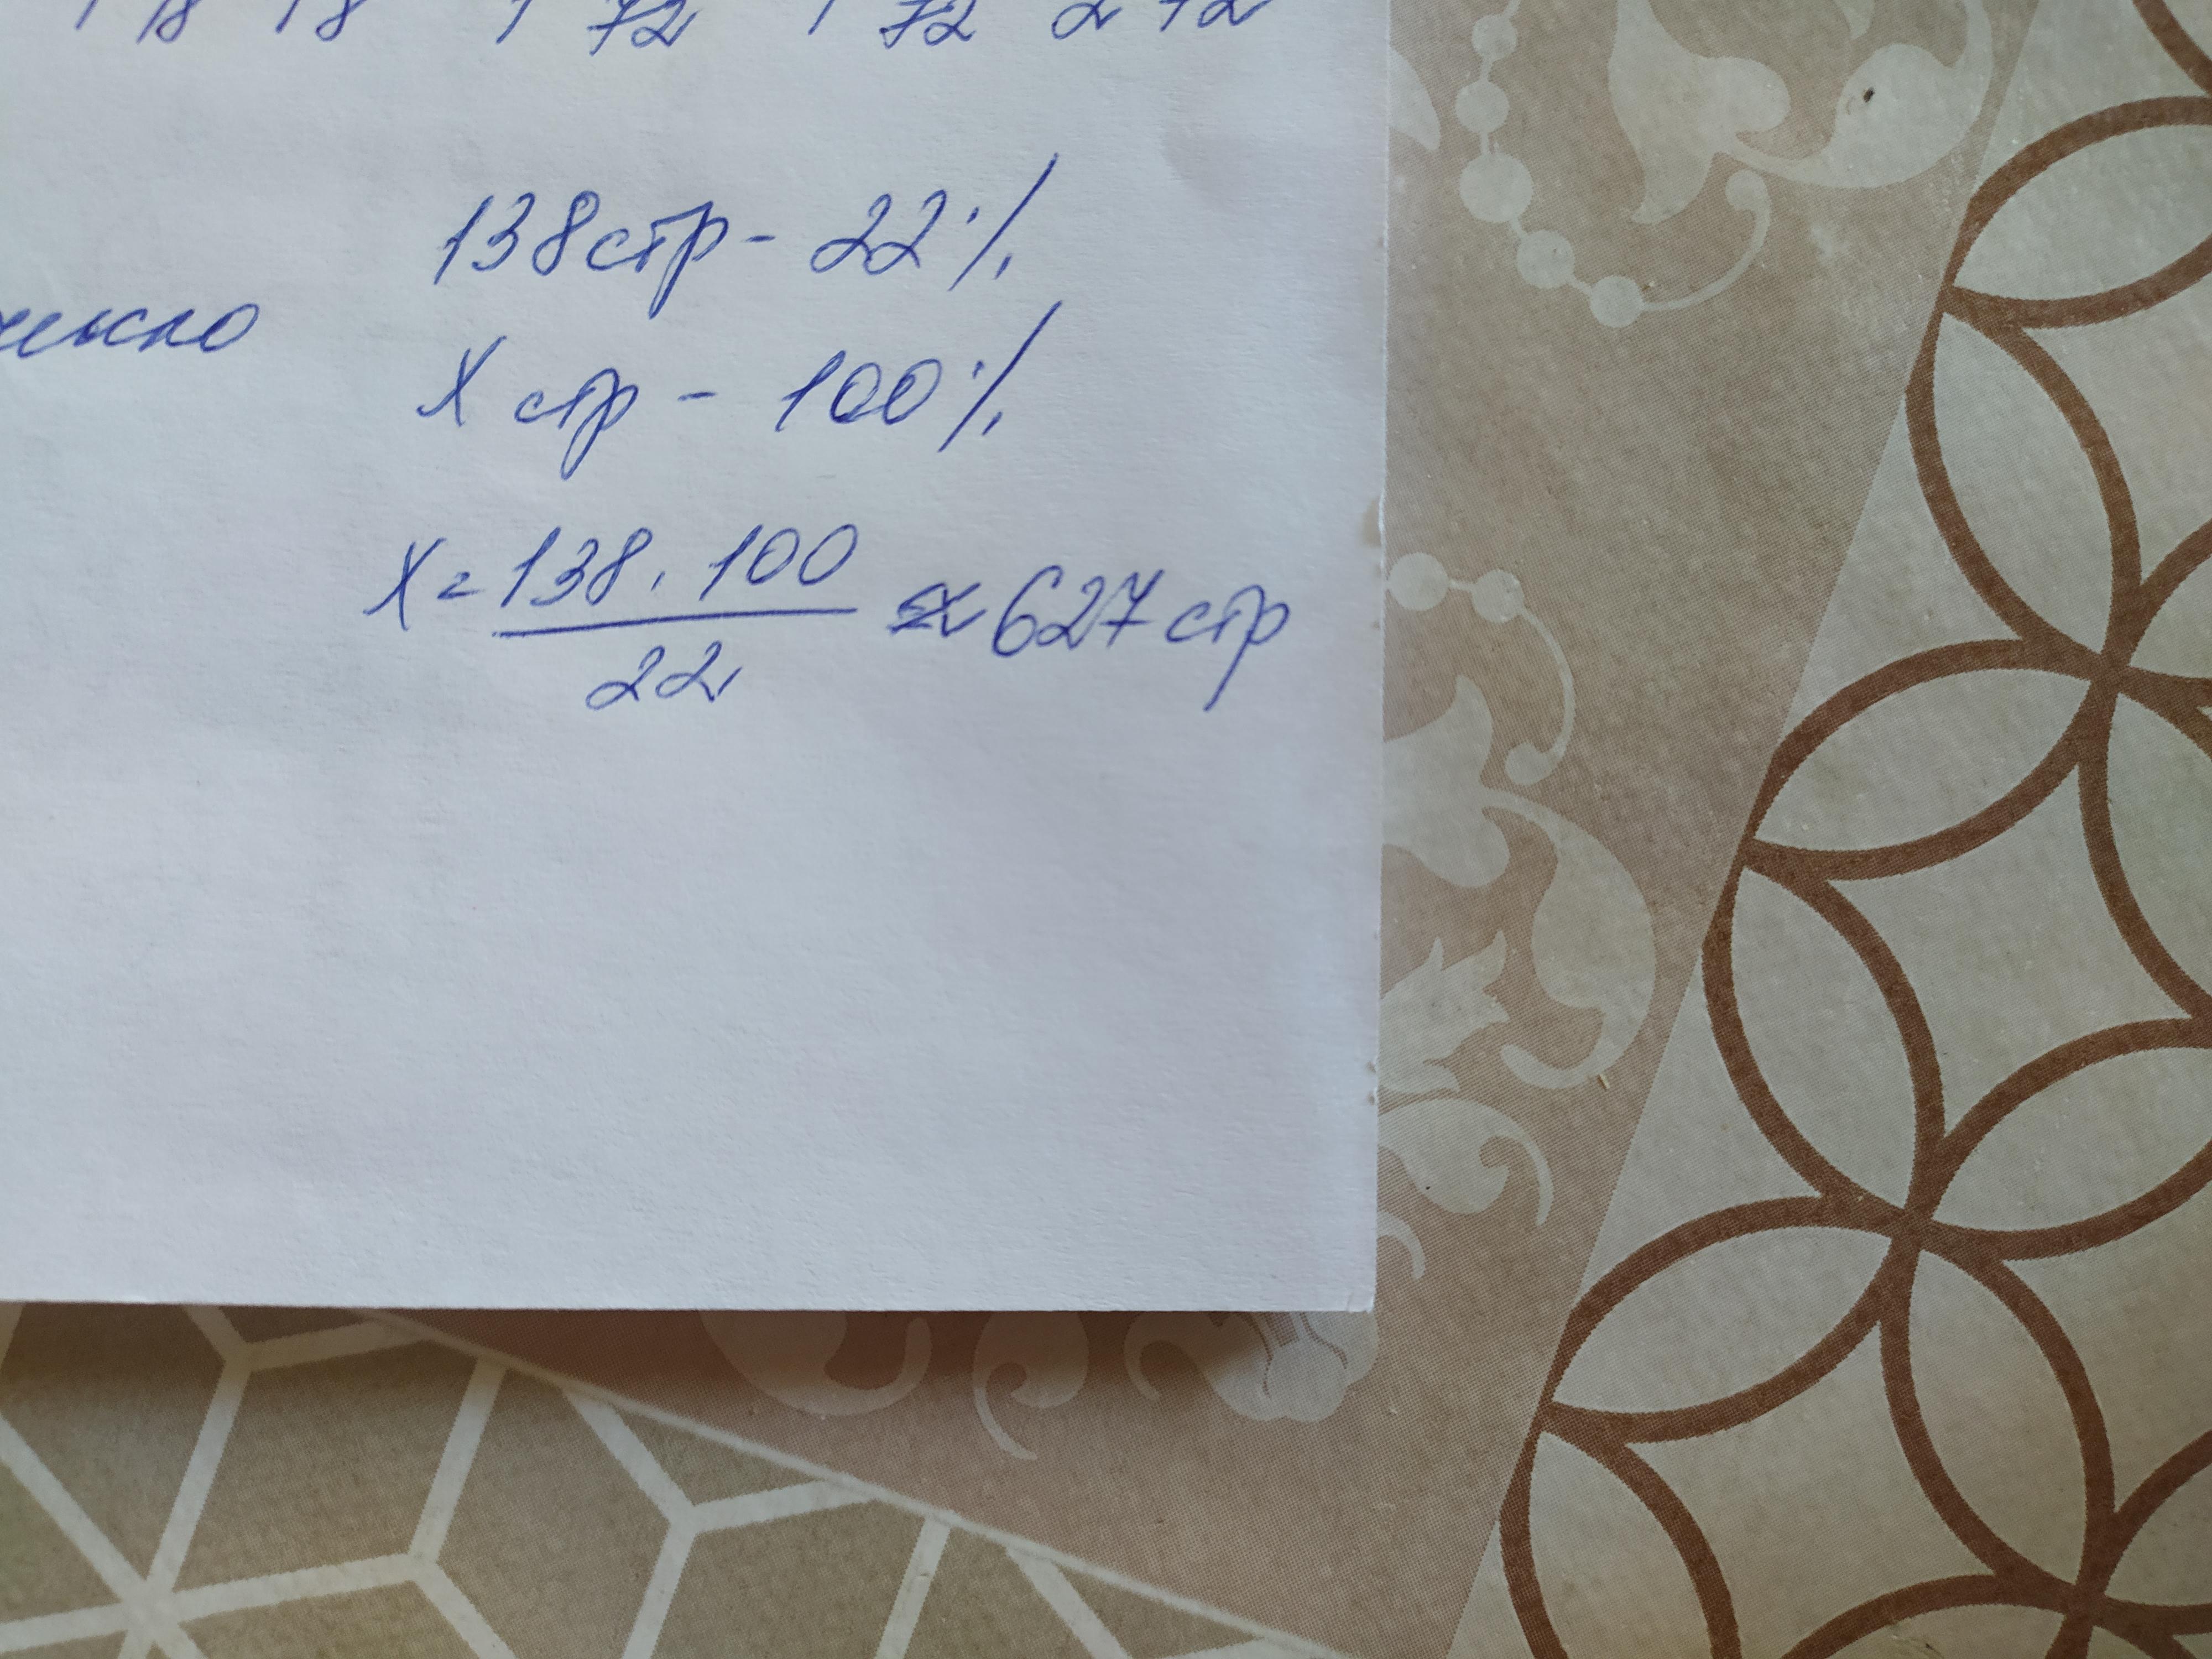 18 18 72 72 2 72
138 стр - 22%
число
х стр - 100%
х = 138 . 100 / 22 ≈ 627 стр